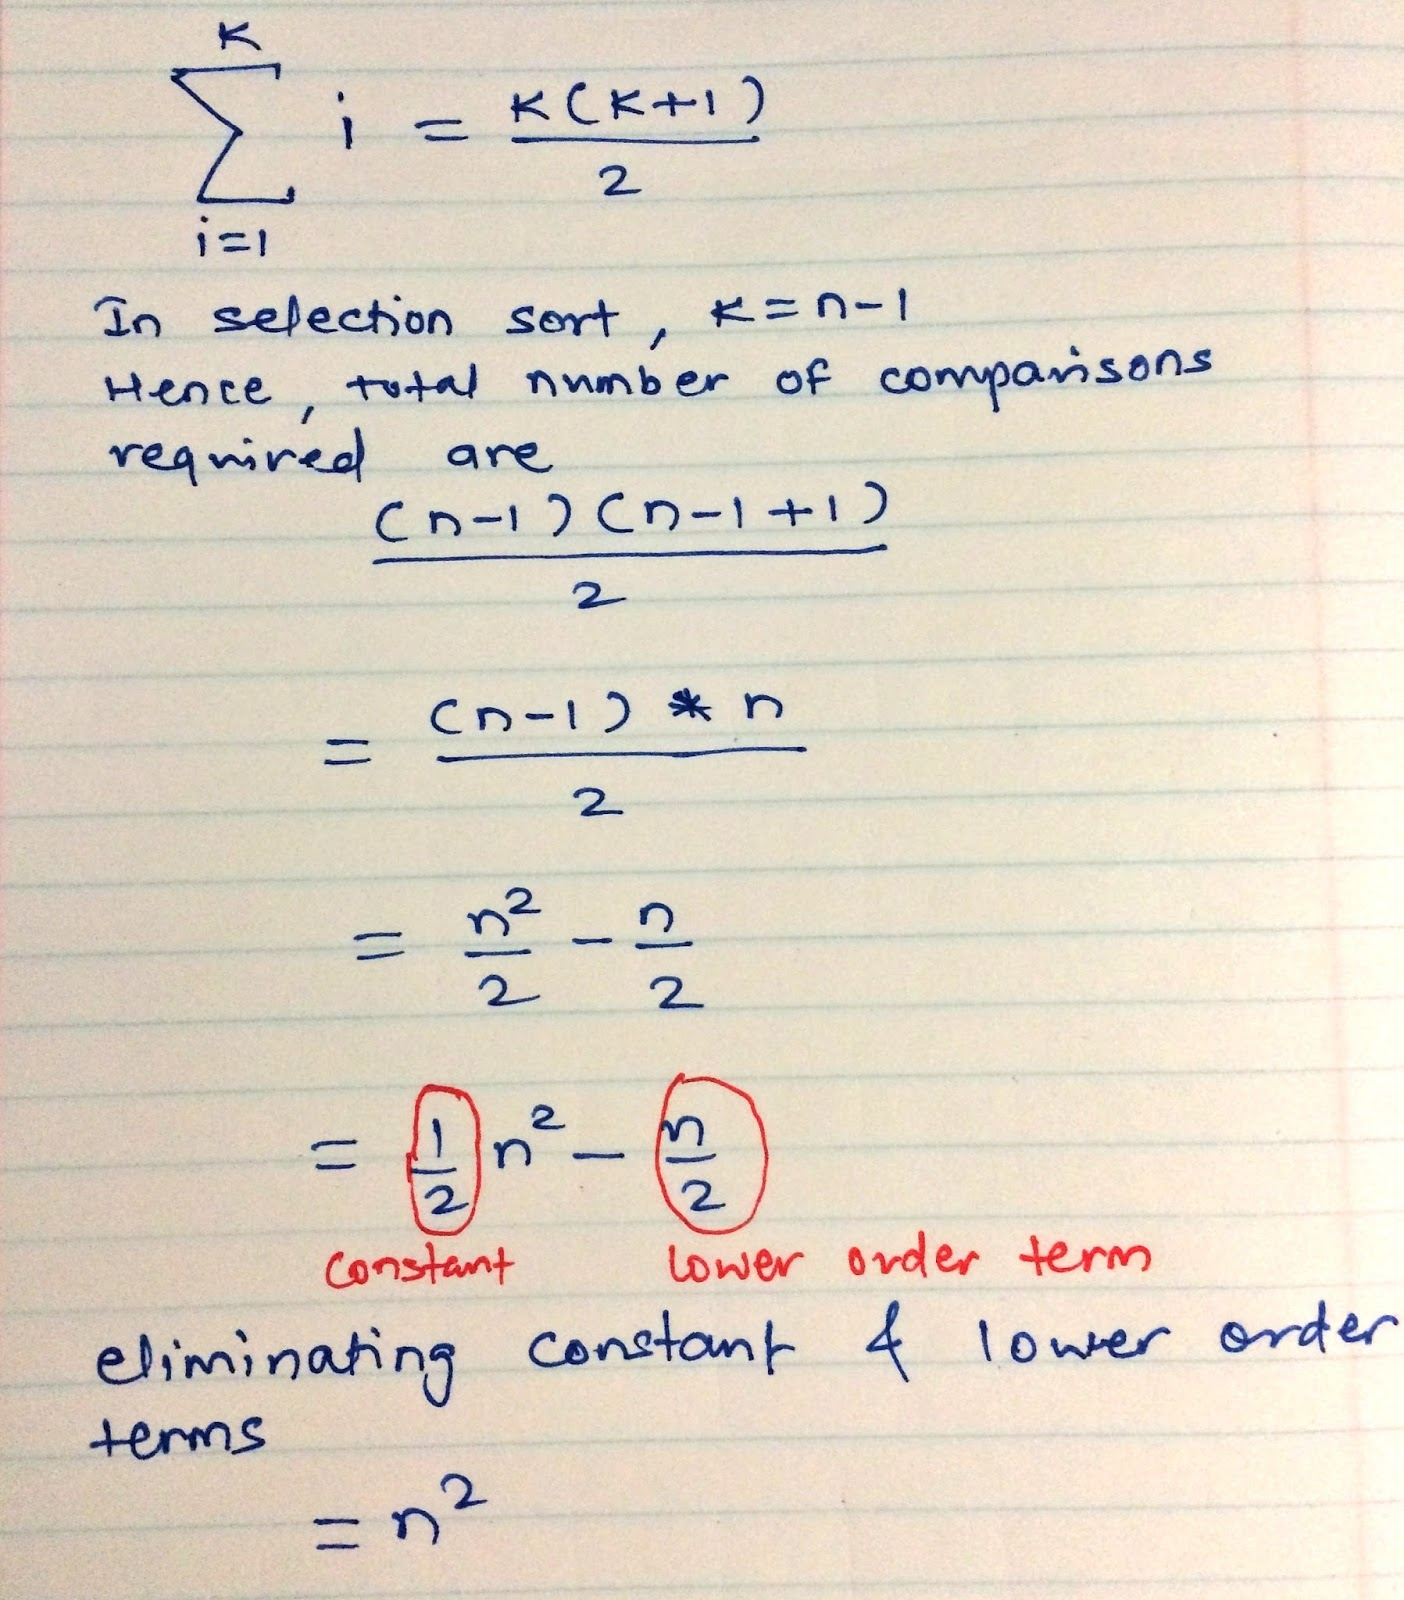 K
∑ i = K(K+1)
2
i=1
In selection sort, K=n-1
Hence, total number of comparisons
required are
(n-1)(n-1+1)
2
= (n-1) * n
2
= n² - n
2 2
= 1 n² - n
2 2
constant lower order term
eliminating constant & lower order
terms
= n²